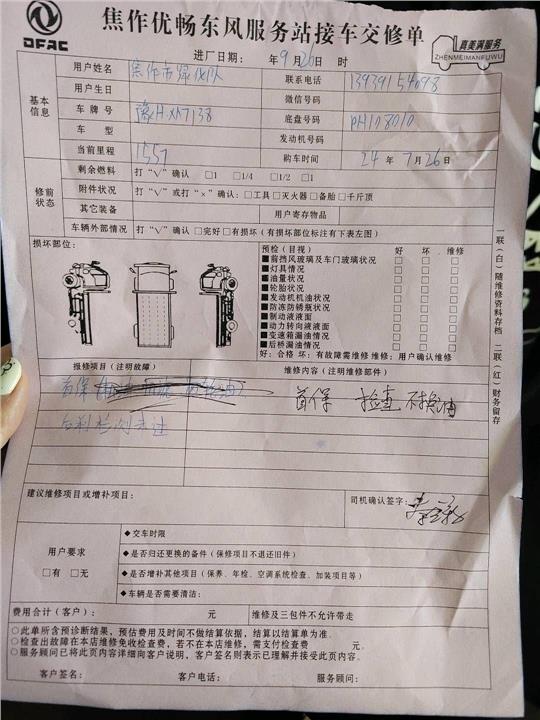 DFAC
焦作优畅东风服务站接车交修单
真美满服务
ZHENMEIMANFUWU
进厂日期： 年9月26日 时
基本信息
用户姓名 焦作市 联系电话
用户生日 微信号码
车牌号 豫H·XA7138 底盘号码 PH108010
车型 发动机号码
当前里程 1557 购车时间 24年7月26日
修前状态
剩余燃料 打“√”确认 □1 □1/4 □1/2 □1
附件状况 打“√”或打“×”确认：□工具□灭火器□备胎□千斤顶
其它装备 用户寄存物品
车辆外部情况 打“√”确认□完好□有损坏（有损坏部位标注有下表左图）
损坏部位：
预检（目视） 好 坏 维修
■前挡风玻璃及车门玻璃状况 □ □ □
■灯具情况 □ □ □
■油量状况 □ □ □
■轮胎状况 □ □ □
■发动机机油状况 □ □ □
■防冻防锈瓶状况 □ □ □
■制动液液面 □ □ □
■动力转向液液面 □ □ □
■变速箱漏油情况 □ □ □
■后桥漏油情况 □ □ □
好：合格 坏：有故障需维修 维修：用户确认维修
报修项目（注明故障） 维修内容（注明维修部件）
首保 首保 检查 不换油
建议维修项目或增补项目： 司机确认签字：
用户要求
□有 □无
◆交车时限
◆是否归还更换的备件（保修项目不退还旧件）
◆是否增补其他项目（保养、年检、空调系统检查、加装项目等）
◆车辆是否需要清洁：
费用合计（客户）： 元 维修及三包件不允许带走
○此单所含预诊断结果，预估费用及时间不做结算依据，结算以结算单为准。
○检查出故障在本店维修免收检查费，若不在本店维修，需支付检查费 元。
○服务顾问已将此页内容详细向客户说明，客户签名则表示已理解并接受此页内容。
客户签名： 客户电话： 服务顾问：
一联（白）随维修资料存档 二联（红）财务留存